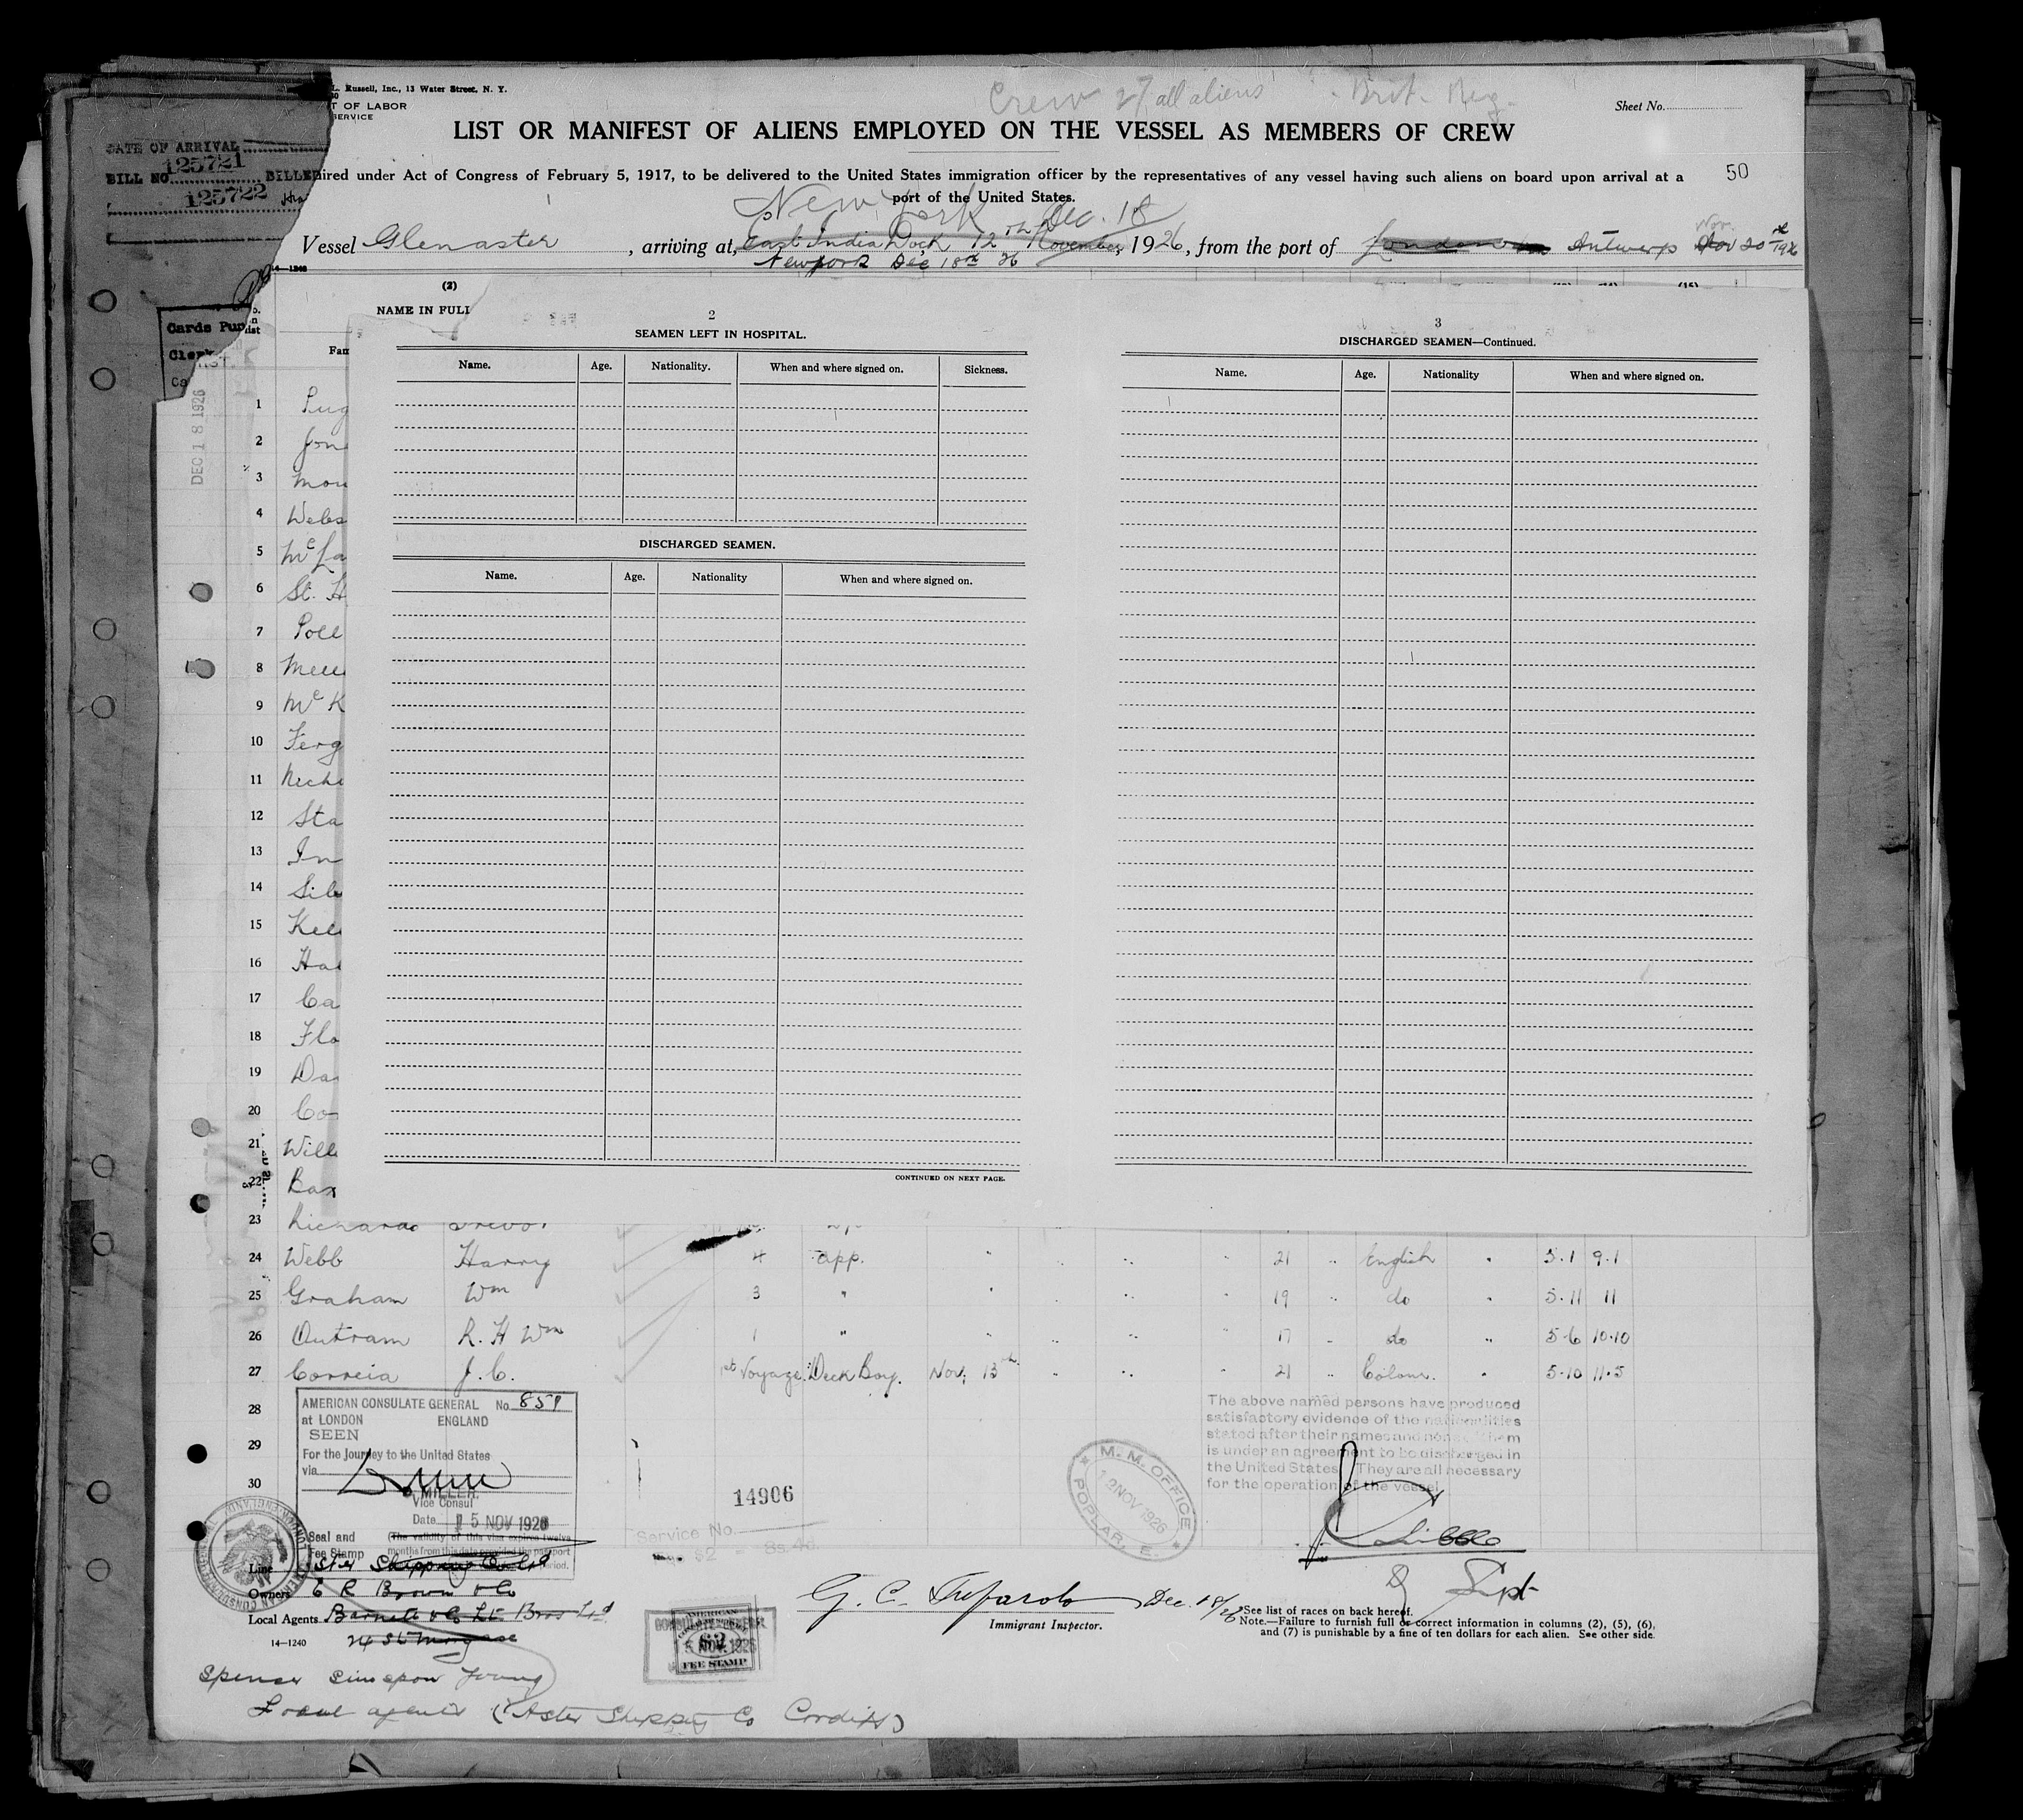 L. Russell, Inc., 13 Water Street, N. Y.
T OF LABOR
SERVICE
Crew 27 all aliens Brit. Reg.
Sheet No.
LIST OR MANIFEST OF ALIENS EMPLOYED ON THE VESSEL AS MEMBERS OF CREW
DATE OF ARRIVAL
BILL NO. 125721
125722
uired under Act of Congress of February 5, 1917, to be delivered to the United States immigration officer by the representatives of any vessel having such aliens on board upon arrival at a
port of the United States.
50
New York Dec. 18
Vessel Glenaster, arriving at East India Dock 12th November, 1926, from the port of London Antwerp Nov 20 1926
New York Dec 18th 26
14-1240
(2)
NAME IN FULL
Fam
Cards Pun
Clerk
DEC 18 1926
2
SEAMEN LEFT IN HOSPITAL.
Name. Age. Nationality. When and where signed on. Sickness.
DISCHARGED SEAMEN.
Name. Age. Nationality When and where signed on.
CONTINUED ON NEXT PAGE.
3
DISCHARGED SEAMEN—Continued.
Name. Age. Nationality When and where signed on.
1 Pug
2 Jon
3 Mou
4 Webs
5 McLa
6 St. H
7 Poll
8 Mell
9 McK
10 Ferg
11 Nicho
12 Sta
13 In
14 Silv
15 Kell
16 Har
17 Ca
18 Flo
19 Dav
20 Co
21 Will
22 Bax
23 Richards Trevor
24 Webb Harry 4 app. 21 English 5·1 9·1
25 Graham Wm 3 " 19 do 5·11 11
26 Outram R. H Wm 1 " 17 do 5·6 10·10
27 Correia J. C. 1st Voyage Deck Boy. Nov. 13th 21 Colour. 5·10 11·5
28
29
30
AMERICAN CONSULATE GENERAL No. 859
at LONDON ENGLAND
SEEN
For the Journey to the United States
via
MILLER
Vice Consul
Date 15 NOV 1926
(The validity of this visa expires twelve
months from this date provided the passport
Seal and
Fee Stamp
14906
Service No.
M. M. OFFICE
12 NOV 1926
POPLAR, E.
The above named persons have produced
satisfactory evidence of the nationalities
stated after their names and none of them
is under an agreement to be discharged in
the United States. They are all necessary
for the operation of the vessel
Dy Supt
Line Shipping Co Ltd
Owners E R Brown & Co
Local Agents Bros Ltd
14—1240
AMERICAN
FEE STAMP
15 NOV 1926
Dec. 18/26
Immigrant Inspector.
See list of races on back hereof.
Note.—Failure to furnish full or correct information in columns (2), (5), (6),
and (7) is punishable by a fine of ten dollars for each alien. See other side.
Spencer Simepon Young
Local agents (Aster Shipping Co Cardiff)